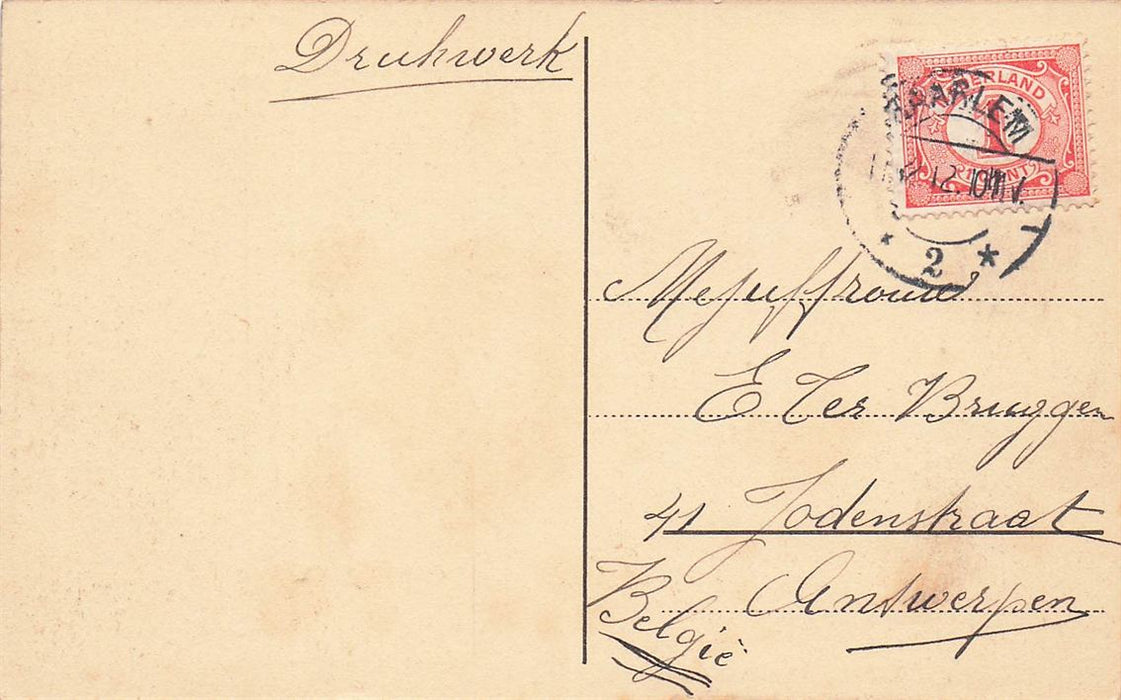 Drukwerk
NEDERLAND
1
CENT
HAARLEM
2
Mejuffrouw
E Ter Bruggen
41 Jodenstraat
Antwerpen
België